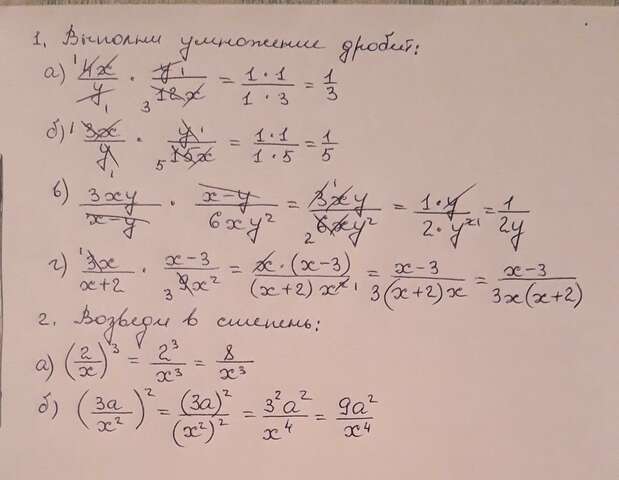 1. Выполни умножение дробит:
а) 4x/y · y/12x = 1·1/1·3 = 1/3
б) 3x/y · y/15x = 1·1/1·5 = 1/5
в) 3xy/x-y · x-y/6xy² = 3xy/6xy² = 1·y/2·y² = 1/2y
г) 3x/x+2 · x-3/9x² = x·(x-3)/(x+2)x² = x-3/3(x+2)x = x-3/3x(x+2)
2. Возведи в степень:
а) (2/x)³ = 2³/x³ = 8/x³
б) (3a/x²)² = (3a)²/(x²)² = 3²a²/x⁴ = 9a²/x⁴